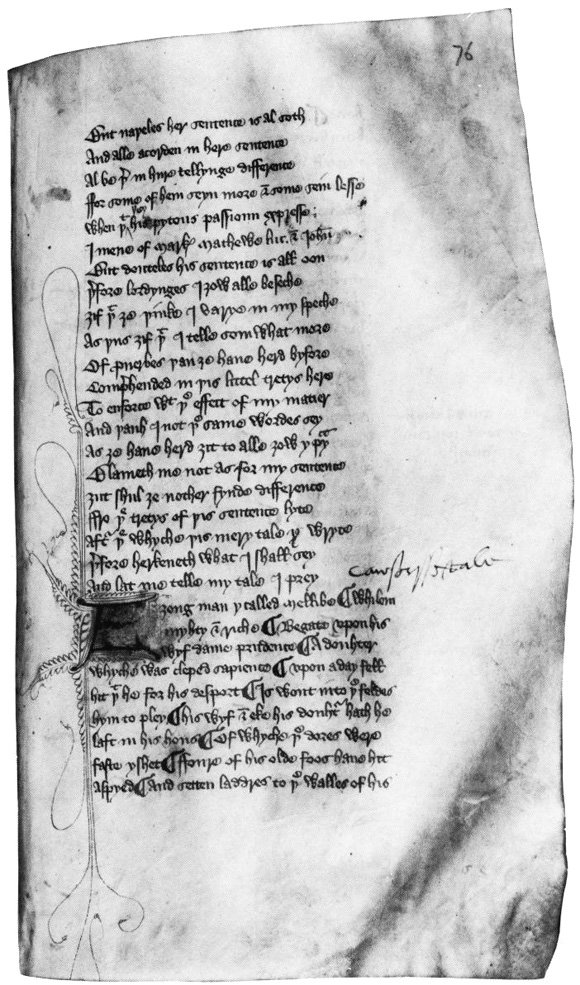 76
But naþeles her sentence is al soth
And alle acorden in here sentence
Al be þͬ in hire tellynge difference
ffor some of hem seyn more & some sein lesse
when þͥ his pytous passioun expresse
I mene of mark Mathewe luc & Johñ
But douteles his sentence is all oon
þͬfore lordynges I ȝow alle beseche
ȝif þͭ ȝe þinke I varye in my speche
As þus ȝif þͭ I telle som what more
Of þuerbes þan ȝe haue herd byfore
Comprehended in þis littel tretys here
To enforce wͭ þͤ effect of my matier
And þauh I not þͤ same wordes sey
As ȝe haue herd ȝit to alle ȝow y
Blameth me not as for my sentence
ȝut shul ȝe nother fynde difference
ffro þͤ tretys of þis sentence lyte
Aftͬ þͤ whyche þis mery tale y wryte
þͬfore herkeneth what I shall sey
And lat me telle my tale I prey
ȝong man y called Mellibe ¶ Whilom
myhty & riche ¶ Begate vpon his
wyf dame prudence ¶ A douhter
whyche was cleped sapience ¶ vpon a day fell
hit þͭ he for his desport ¶ Is wont into þͤ feldes
hym to pley ¶ his wyf & eke his douhtͬ hath he
laft in his hous ¶ Of whyche þͤ dores were
faste yshet ¶ ffoure of his olde foos haue hit
aspyed ¶ And setten laddres to þͤ walles of his